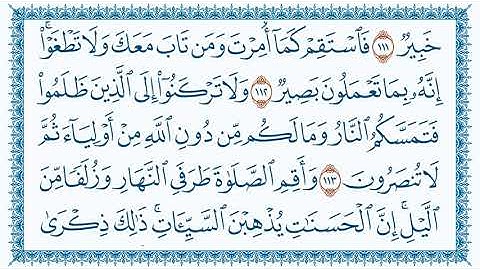 خَبِيرٌ ١١١ فَٱسْتَقِمْ كَمَآ أُمِرْتَ وَمَن تَابَ مَعَكَ وَلَا تَطْغَوْا۟ۚ
إِنَّهُۥ بِمَا تَعْمَلُونَ بَصِيرٌ ١١٢ وَلَا تَرْكَنُوٓا۟ إِلَى ٱلَّذِينَ ظَلَمُوا۟
فَتَمَسَّكُمُ ٱلنَّارُ وَمَا لَكُم مِّن دُونِ ٱللَّهِ مِنْ أَوْلِيَآءَ ثُمَّ
لَا تُنصَرُونَ ١١٣ وَأَقِمِ ٱلصَّلَوٰةَ طَرَفَىِ ٱلنَّهَارِ وَزُلَفًا مِّنَ
ٱلَّيْلِۚ إِنَّ ٱلْحَسَنَـٰتِ يُذْهِبْنَ ٱلسَّيِّـَٔاتِۚ ذَٰلِكَ ذِكْرَىٰ